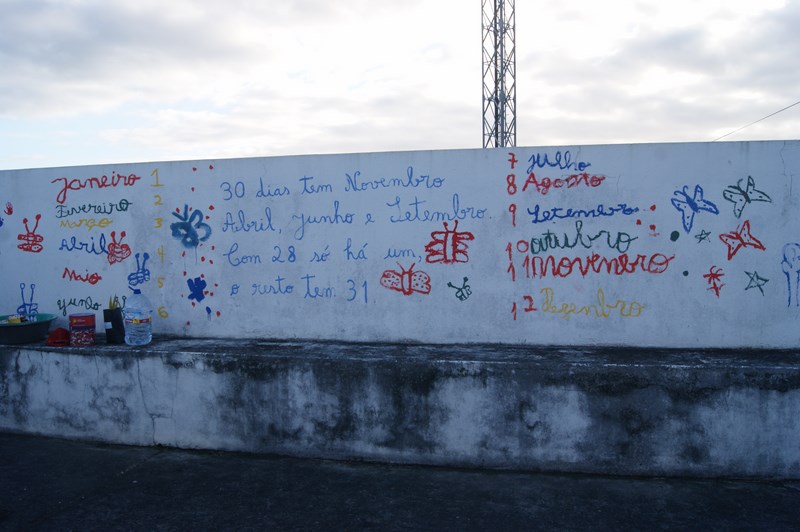 Janeiro 1
Fevereiro 2
Março 3
Abril 4
Maio 5
Junho 6
30 dias tem Novembro
Abril, junho e Setembro.
Com 28 só há um,
o resto tem 31
7 Julho
8 Agosto
9 Setembro
10 outubro
11 novembro
12 Dezembro